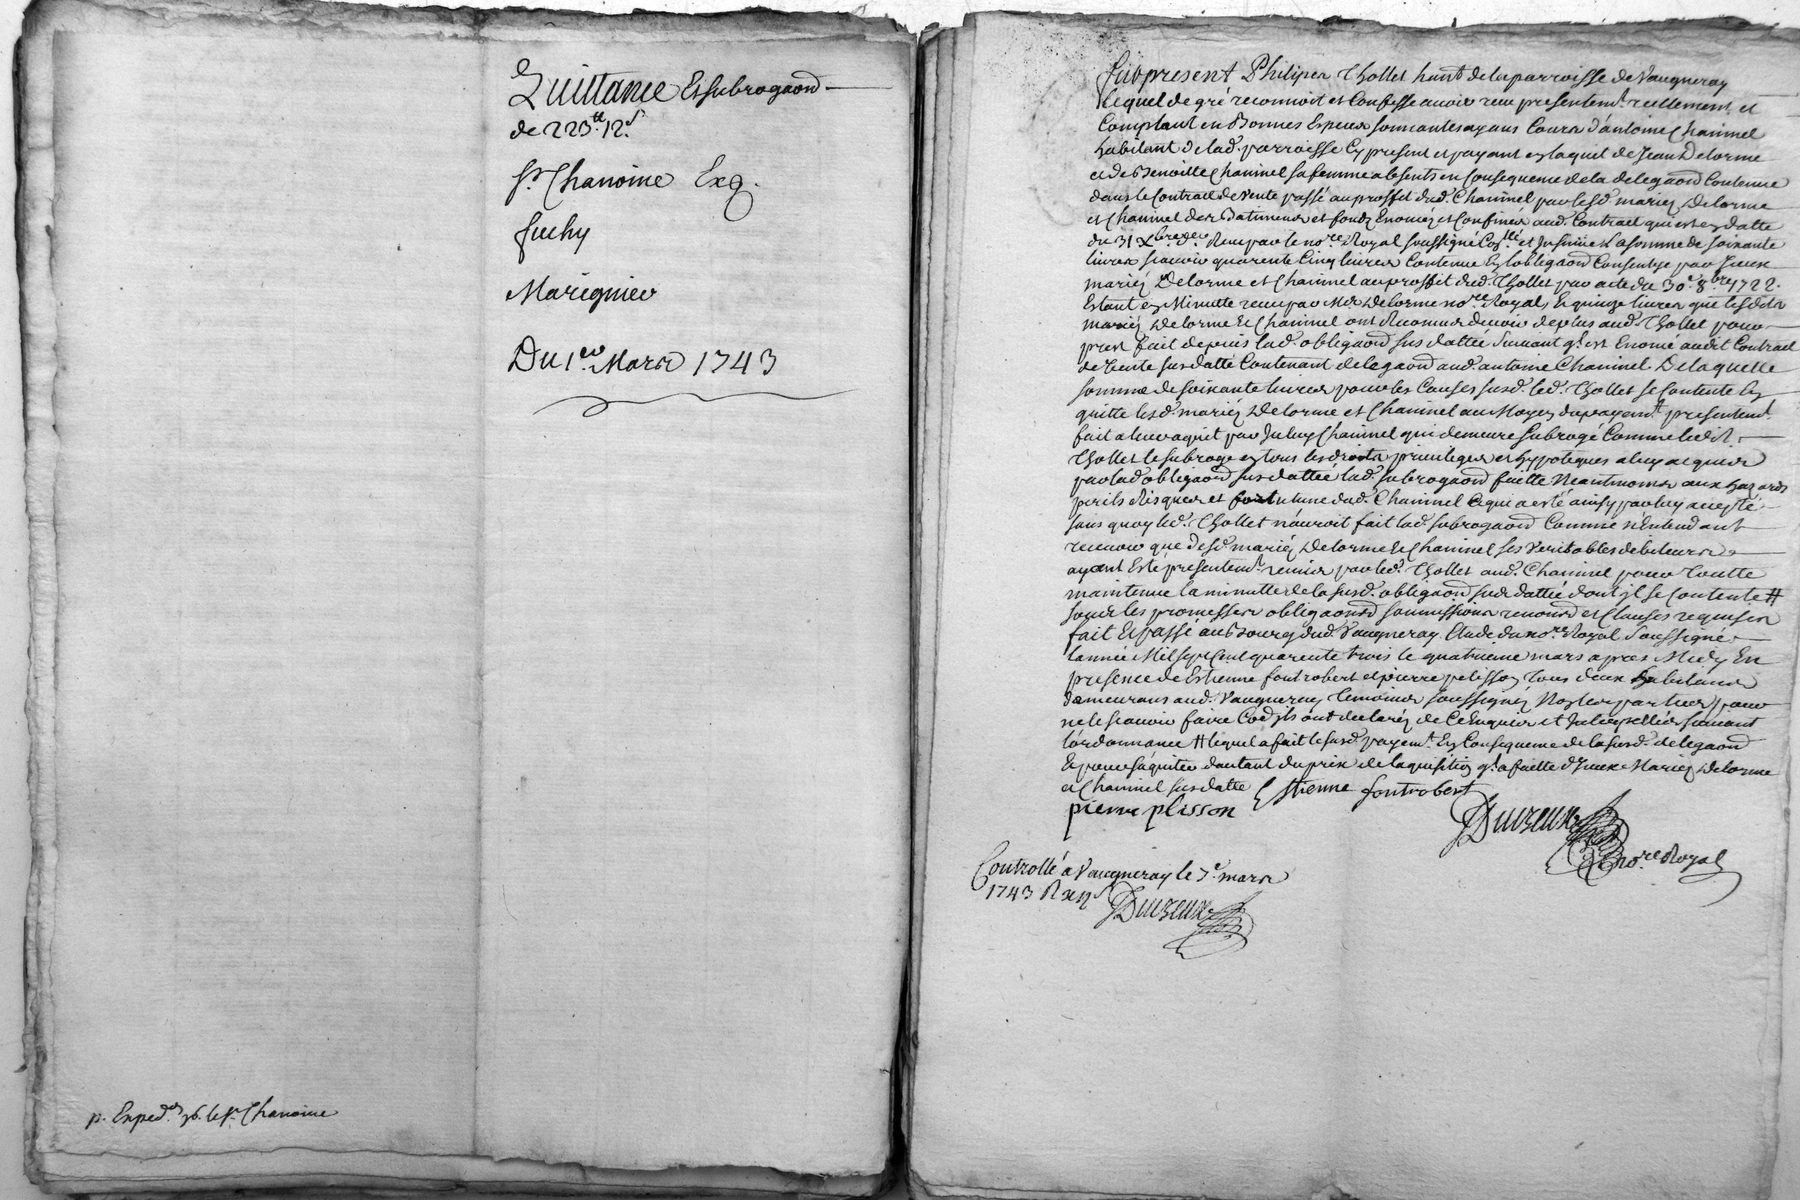 Quittance Et subrogaõn
de 223ᵗᵗ 12ˢ
Sʳ Chanoine Exq.
Fuchy
Marignier
Du 1ᵉʳ Mars 1743
p. Exped. le Sʳ Chanoine
fut present Philiper Thollet habt de la parroisse de Vaugneray
lequel de gré reconnoit et Confesse avoir receu presentemᵗ reellement et
Comptant en Bonnes Especes sonnantes ayans Cours d'antoine Chaninel
habitant de lad. parroisse Cy present et payant en laquit de Jean Delorme
et de Benoitte Chaninel sa femme absents en Consequence de la delegaõn Contenue
dans le Contract de Vente passé au proffit dud. Chaninel par lesd. mariez Delorme
et Chaninel des Batimens et fondz Enoncez et Confinés aud. Contract qui est en datte
du 31 xbre dᵉʳ Receu par le noʳᵉ Royal soussigné et Insinué La somme de soixante
livres scavoir quarente Cinq livres Contenue En lobligaõn Consentye par Iceux
mariez Delorme et Chaninel au proffit dud. Thollet par acte du 30ᵉ 8bre 1722
Estant en Minutte receu par Mᵉ Delorme noʳᵉ Royal, Et quinze livres que lesdits
mariez Delorme Et Chaninel ont Reconnu devoir de plus aud. Thollet pour
prest fait depuis lad. obligaõn sus dattée suivant qˡ est Enoncé audit Contract
de Vente sus datté Contenant delegaõn aud. antoine Chaninel De laquelle
somme de soixante livres pour les Causes susd. led. Thollet se Contente En
quitte lesd. mariez Delorme et Chaninel au Moyen du payemᵗ presentemᵗ
fait a leur aquit par Iceluy Chaninel qui demeure subrogé Comme ledit
Thollet le subroge en tous les droits privileges et hypoteques a luy acquis
par lad. obligaõn sus dattée lad. subrogaõn faitte Neantmoins aux hazards
perils Risques et fortune dud. Chaninel Ce qui a esté ainsy par luy accepté
sans quoy led. Thollet n'auroit fait lad. subrogaõn Comme n'Entendant
recevoir que desd. mariez Delorme Et Chaninel ses Veritables debiteurs
ayant Esté presentemᵗ remise par led. Thollet aud. Chaninel pour Toutte
maintenue la minutte de la susd. obligaõn sus dattée dont il se Contente #
sous les promesses obligaõns soumissions renonõns et Clauses requises
fait Et passé au Bourg dud. Vaugneray Etude du noʳᵉ Royal soussigné
lannée Mil sept Cent quarente trois le quatrieme mars apres Midy En
presence de Estienne fontrobert et pierre pelisson tous deux habitans
demeurans aud. Vaugneray temoins soussignez Non les parties pour
ne le scavoir faire Comme ils ont declaré de Ce Enquis et Interpellés suivant
l'ordonnance # lequel a fait le susd. payemᵗ En Consequence de la susd. delegaõn
Et pour s'aquiter dautant du prix de laquisition qˡ a faitte d'Iceux Mariez Delorme
et Chaninel sus datte Estienne fontrobert
pierre plisson
noʳᵉ Royal
Controllé a Vaugneray le 7ᵉ mars
1743 R xijˢ